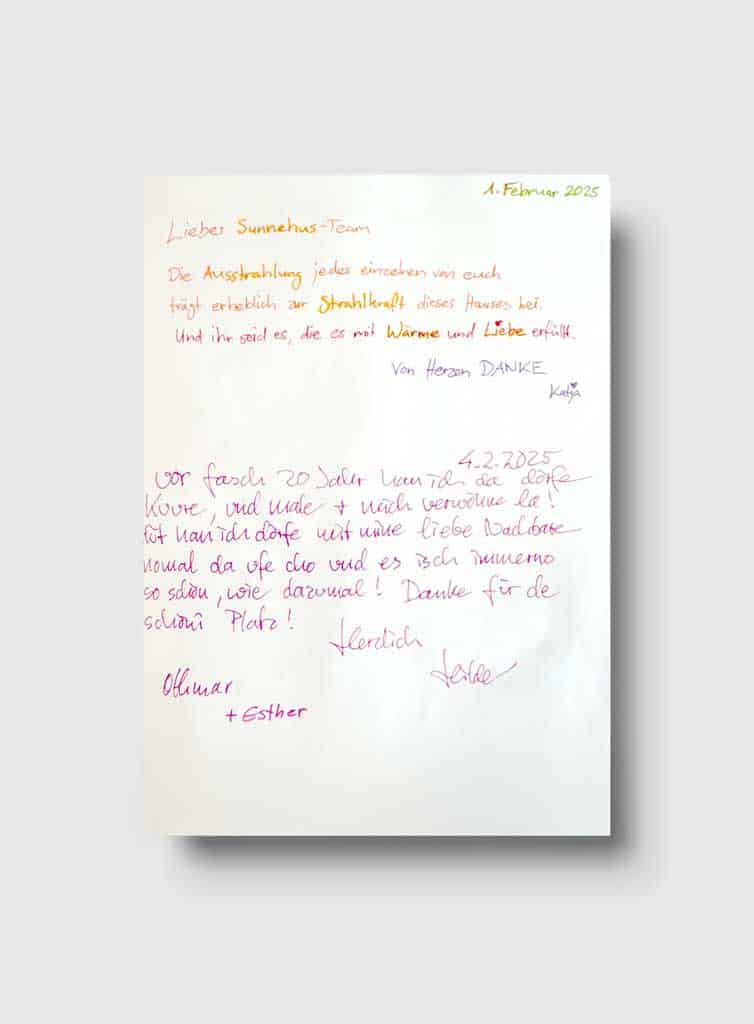 1. Februar 2025
Liebes Sunnehus-Team
Die Ausstrahlung jedes einzelnen von euch
trägt erheblich zur Strahlkraft dieses Hauses bei.
Und ihr seid es, die es mit Wärme und Liebe erfüllt.
Von Herzen DANKE
Katja
4.2.2025
Vor fasch 20 Jahr han ich da dörfe
Kuure, und male + mich verwöhne la!
Hüt han ich dörfe mit mine liebe Nachbare
nomal da ufe cho und es isch immerno
so schön, wie dazumal! Danke für de
schöni Platz!
Herzlich
Othmar
+ Esther